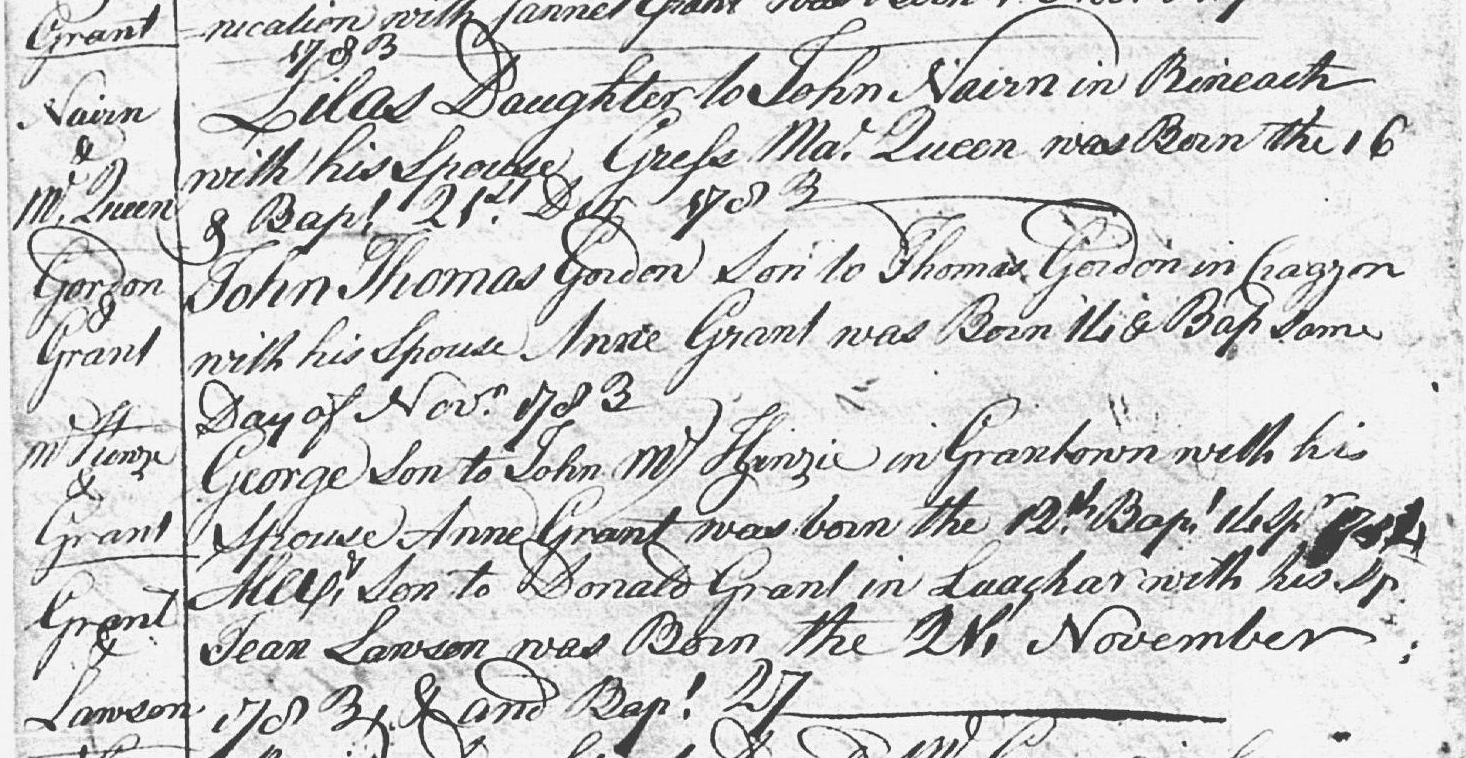 Grant nication with Jannet Grant was
1783
Nairn Lilas Daughter to John Nairn in Rineach
& with his Spouse Gress Mac Queen was Born the 16
Mc Queen & Bapt 21st Decr 1783
Gordon John Thomas Gordon Son to Thomas Gordon in Craggon
& Grant with his Spouse Anne Grant was Born 14 & Bapt Same
Day of Novr 1783
Mc Kenzie George Son to John Mc Kinzie in Grantown with his
& Grant Spouse Anne Grant was born the 12th Bapt 14 1784
Grant Alexr Son to Donald Grant in Luachar with his Sp
& Jean Lawson was Born the 21st November
Lawson 1783 & and Bapt 27